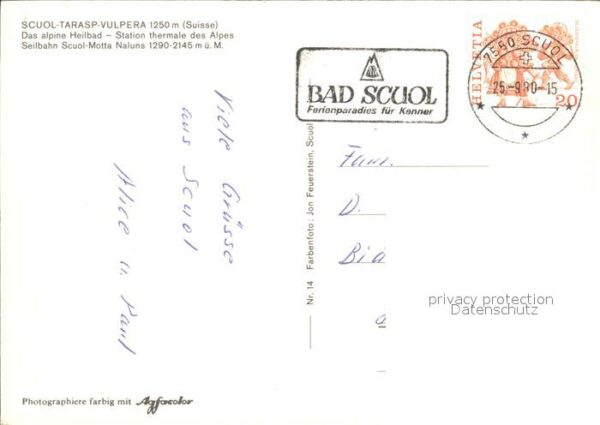 SCUOL-TARASP-VULPERA 1250 m (Suisse)
Das alpine Heilbad – Station thermale des Alpes
Seilbahn Scuol-Motta Naluns 1290-2145 m ü. M.
BAD SCUOL
Ferienparadies für Kenner
7550 SCUOL
25.-9.80-15
HELVETIA
20
Viele Grüsse
aus Scuol
Alice u. Paul
Nr. 14 Farbenfoto: Jon Feuerstein, Scuol
Fam.
D.
Bia
privacy protection
Datenschutz
Photographiere farbig mit Agfacolor